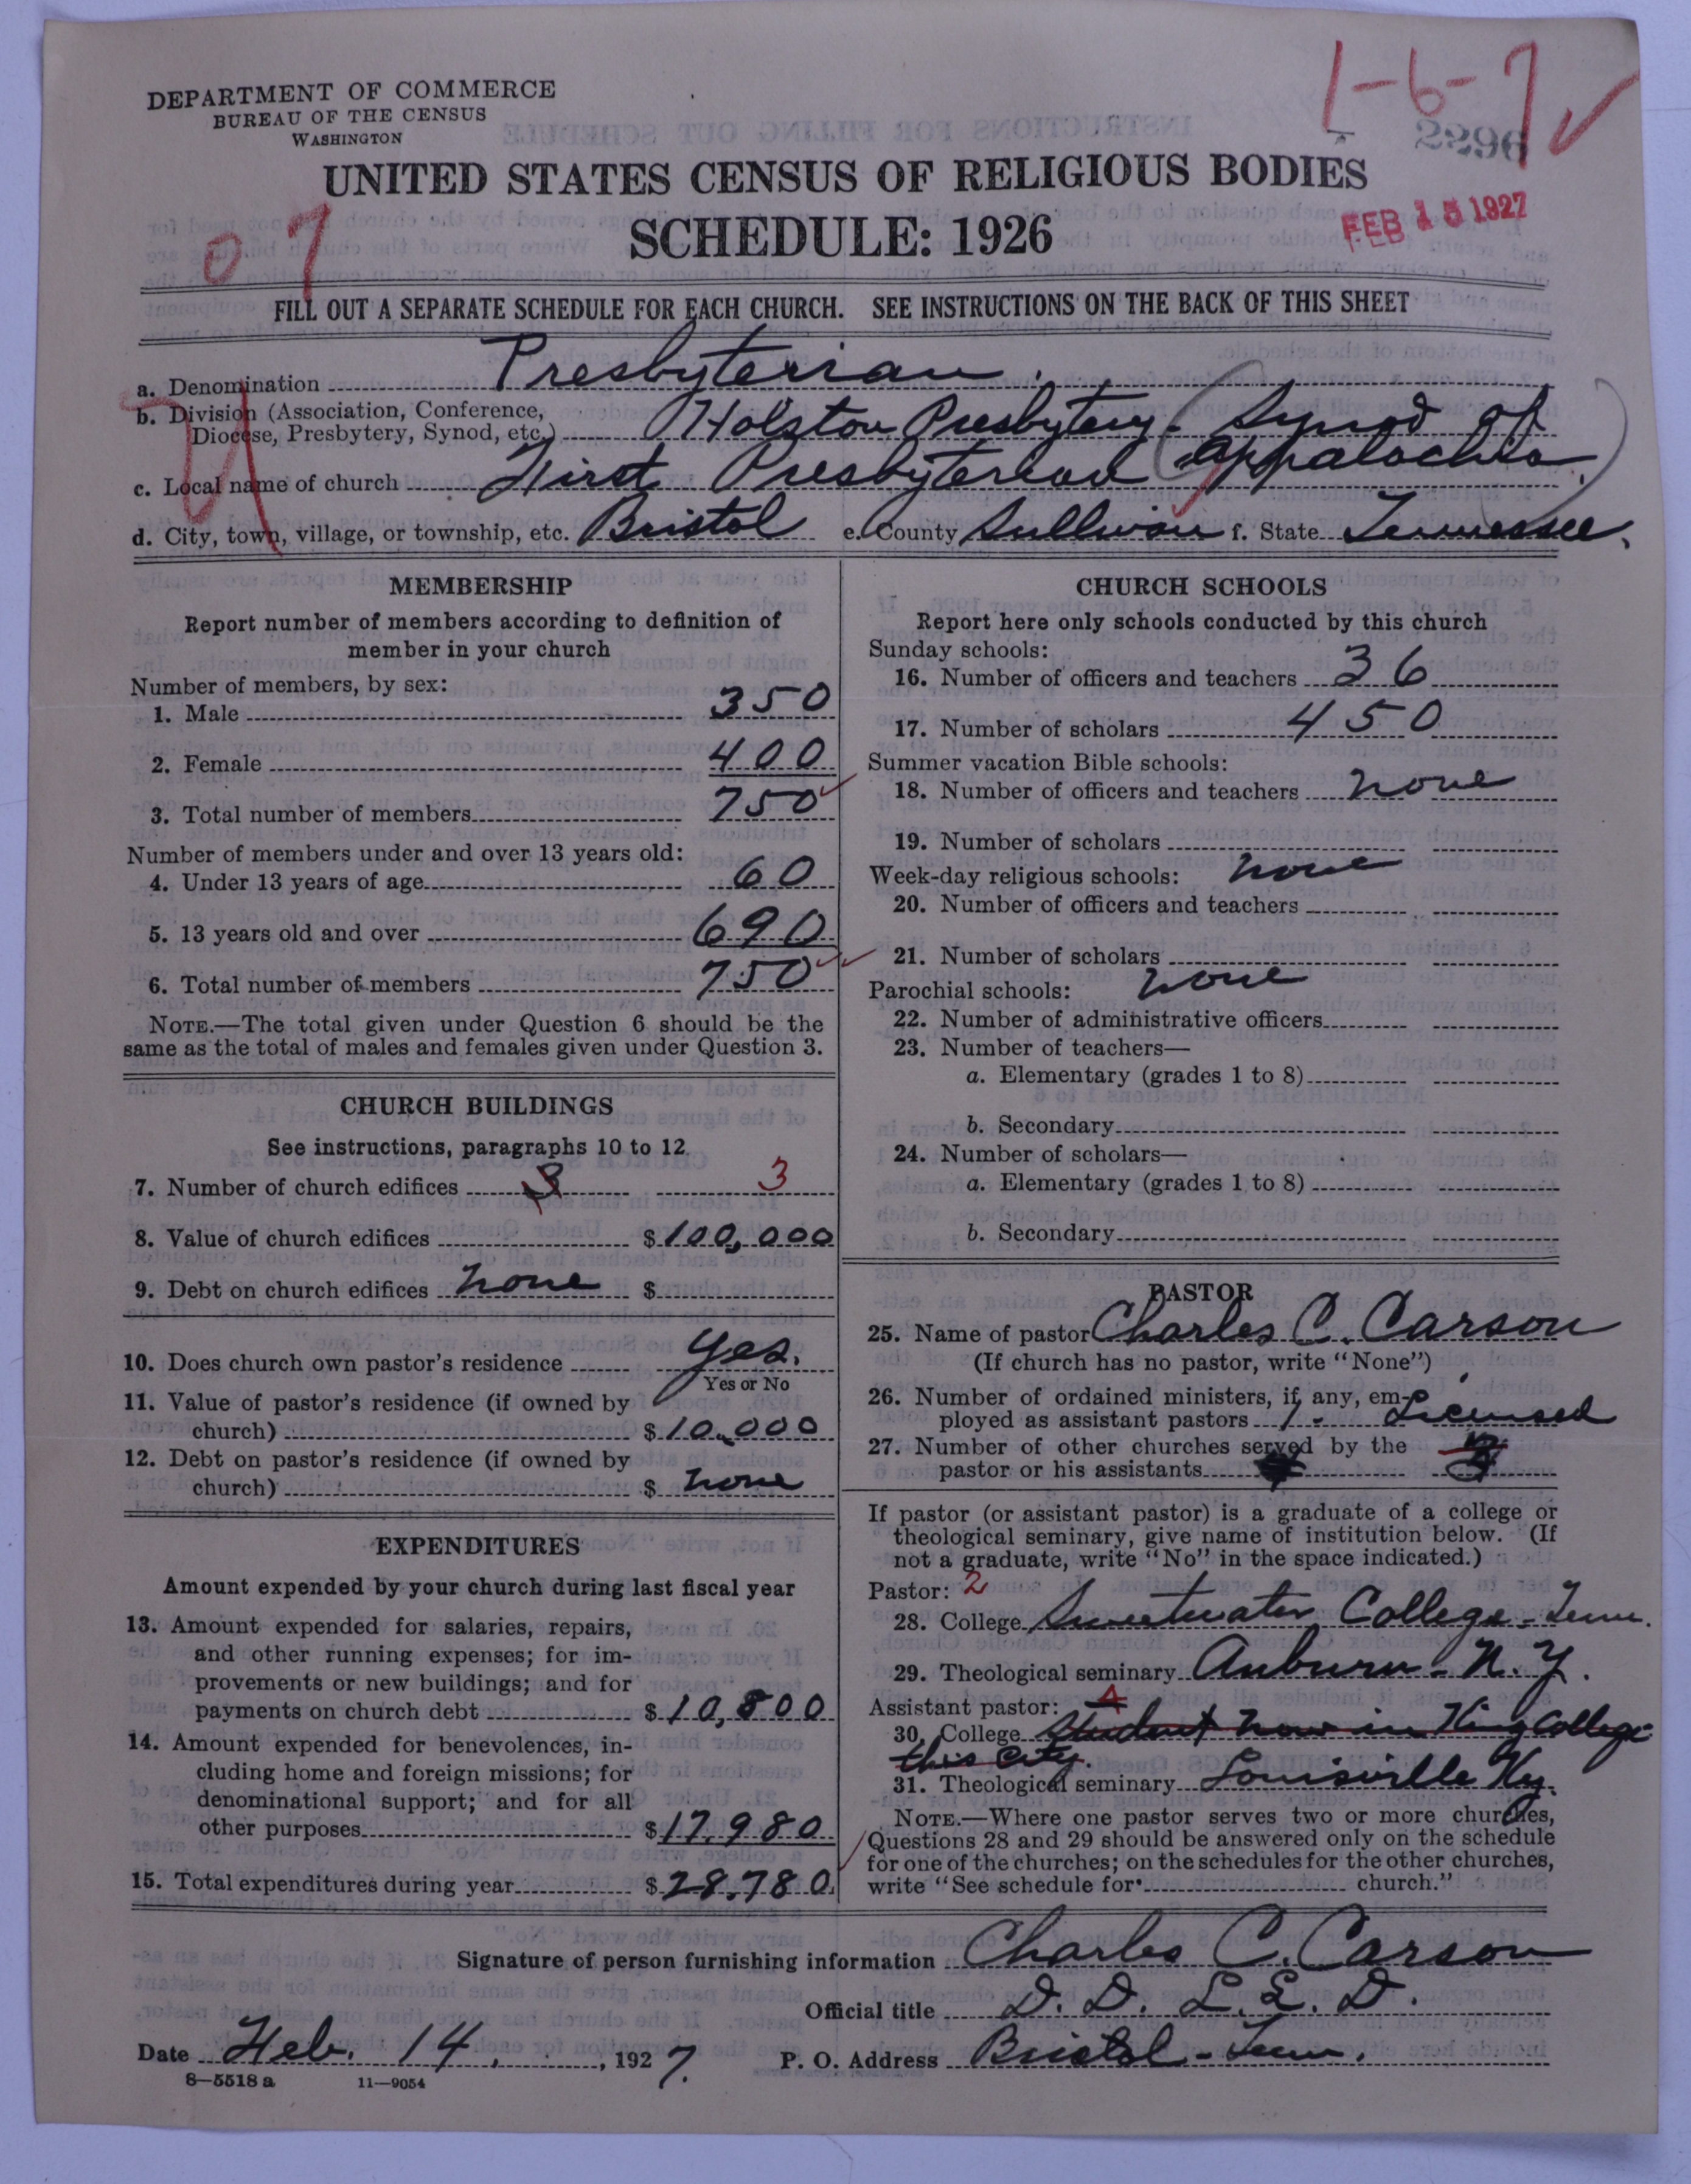 1-6-7 ✓
DEPARTMENT OF COMMERCE
BUREAU OF THE CENSUS
WASHINGTON
2296
UNITED STATES CENSUS OF RELIGIOUS BODIES
SCHEDULE: 1926
FEB 15 1927
07
FILL OUT A SEPARATE SCHEDULE FOR EACH CHURCH. SEE INSTRUCTIONS ON THE BACK OF THIS SHEET
a. Denomination Presbyterian.
b. Division (Association, Conference,
Diocese, Presbytery, Synod, etc.) Holston Presbytery - (Synod of
Appalachia.)
c. Local name of church First Presbyterian
d. City, town, village, or township, etc. Bristol e. County Sullivan f. State Tennessee.
MEMBERSHIP
Report number of members according to definition of
member in your church
Number of members, by sex:
1. Male 350
2. Female 400
3. Total number of members 750
Number of members under and over 13 years old:
4. Under 13 years of age 60
5. 13 years old and over 690
6. Total number of members 750
NOTE.—The total given under Question 6 should be the
same as the total of males and females given under Question 3.
CHURCH BUILDINGS
See instructions, paragraphs 10 to 12.
7. Number of church edifices 3 3
8. Value of church edifices $100,000
9. Debt on church edifices none $
10. Does church own pastor's residence Yes.
Yes or No
11. Value of pastor's residence (if owned by
church) $10,000
12. Debt on pastor's residence (if owned by
church) $ none
EXPENDITURES
Amount expended by your church during last fiscal year
13. Amount expended for salaries, repairs,
and other running expenses; for im-
provements or new buildings; and for
payments on church debt $10,800
14. Amount expended for benevolences, in-
cluding home and foreign missions; for
denominational support; and for all
other purposes $17,980
15. Total expenditures during year $28,780
CHURCH SCHOOLS
Report here only schools conducted by this church
Sunday schools:
16. Number of officers and teachers 36
17. Number of scholars 450
Summer vacation Bible schools:
18. Number of officers and teachers none
19. Number of scholars
Week-day religious schools: none
20. Number of officers and teachers
21. Number of scholars
Parochial schools: none
22. Number of administrative officers
23. Number of teachers—
a. Elementary (grades 1 to 8)
b. Secondary
24. Number of scholars—
a. Elementary (grades 1 to 8)
b. Secondary
PASTOR
25. Name of pastor Charles C. Carson
(If church has no pastor, write "None")
26. Number of ordained ministers, if any, em-
ployed as assistant pastors 1 - Licensed
27. Number of other churches served by the
pastor or his assistants
If pastor (or assistant pastor) is a graduate of a college or
theological seminary, give name of institution below. (If
not a graduate, write "No" in the space indicated.)
Pastor: 2
28. College Sweetwater College - Tenn.
29. Theological seminary Auburn - N.Y.
Assistant pastor: 4
30. College Student now in King College
this city.
31. Theological seminary Louisville Ky.
NOTE.—Where one pastor serves two or more churches,
Questions 28 and 29 should be answered only on the schedule
for one of the churches; on the schedules for the other churches,
write "See schedule for church."
Signature of person furnishing information Charles C. Carson
Official title D. D. L.L. D.
Date Feb. 14, 1927. P. O. Address Bristol - Tenn.
8—5518 a 11—9054